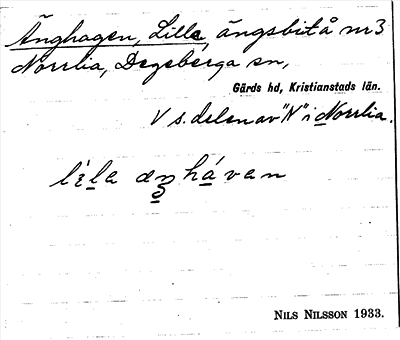 Änghagen, Lilla, ängsbit å nr 3
Norrlia, Degeberga sn,
Gärds hd, Kristianstads län.
V s. delen av "N" i Norrlia.
lìla æŋhávan
NILS NILSSON 1933.